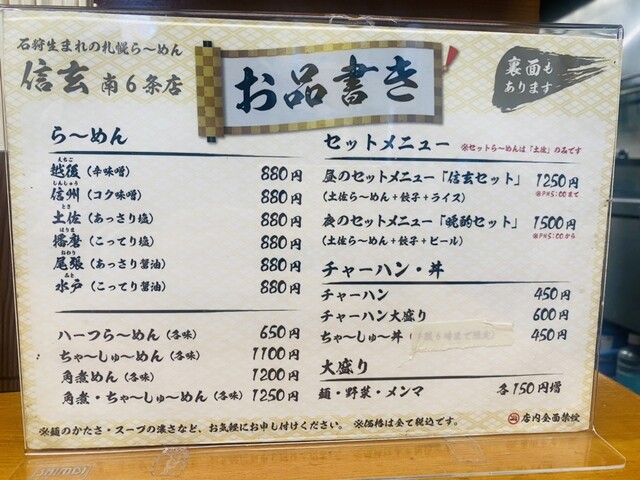 石狩生まれの札幌ら〜めん
信玄 南6条店
お品書き
裏面も
あります
ら〜めん
えちご
越後（辛味噌） 880円
しんしゅう
信州（コク味噌） 880円
とさ
土佐（あっさり塩） 880円
はりま
播磨（こってり塩） 880円
おわり
尾張（あっさり醤油） 880円
みと
水戸（こってり醤油） 880円
ハーフら〜めん（各味） 650円
ちゃ〜しゅ〜めん（各味） 1100円
角煮めん（各味） 1200円
角煮・ちゃ〜しゅ〜めん（各味） 1250円
セットメニュー ※セットら〜めんは「土佐」の品です
昼のセットメニュー「信玄セット」 1250円
（土佐ら〜めん＋餃子＋ライス） ※PM5:00まで
夜のセットメニュー「晩酌セット」 1500円
（土佐ら〜めん＋餃子＋ビール） ※PM5:00から
チャーハン・丼
チャーハン 450円
チャーハン大盛り 600円
ちゃ〜しゅ〜丼 450円
大盛り
麺・野菜・メンマ 各150円増
※麺のかたさ・スープの濃さなど、お気軽にお申し付けください。 ※価格は全て税込です。
店内全面禁煙